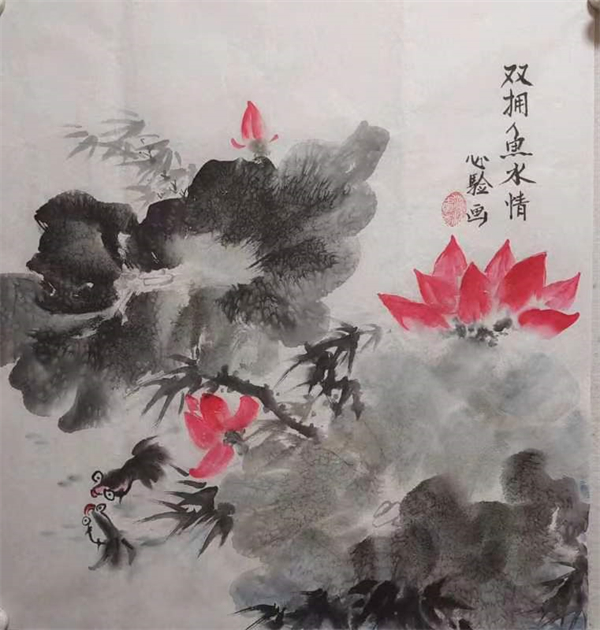 双拥鱼水情
心验画